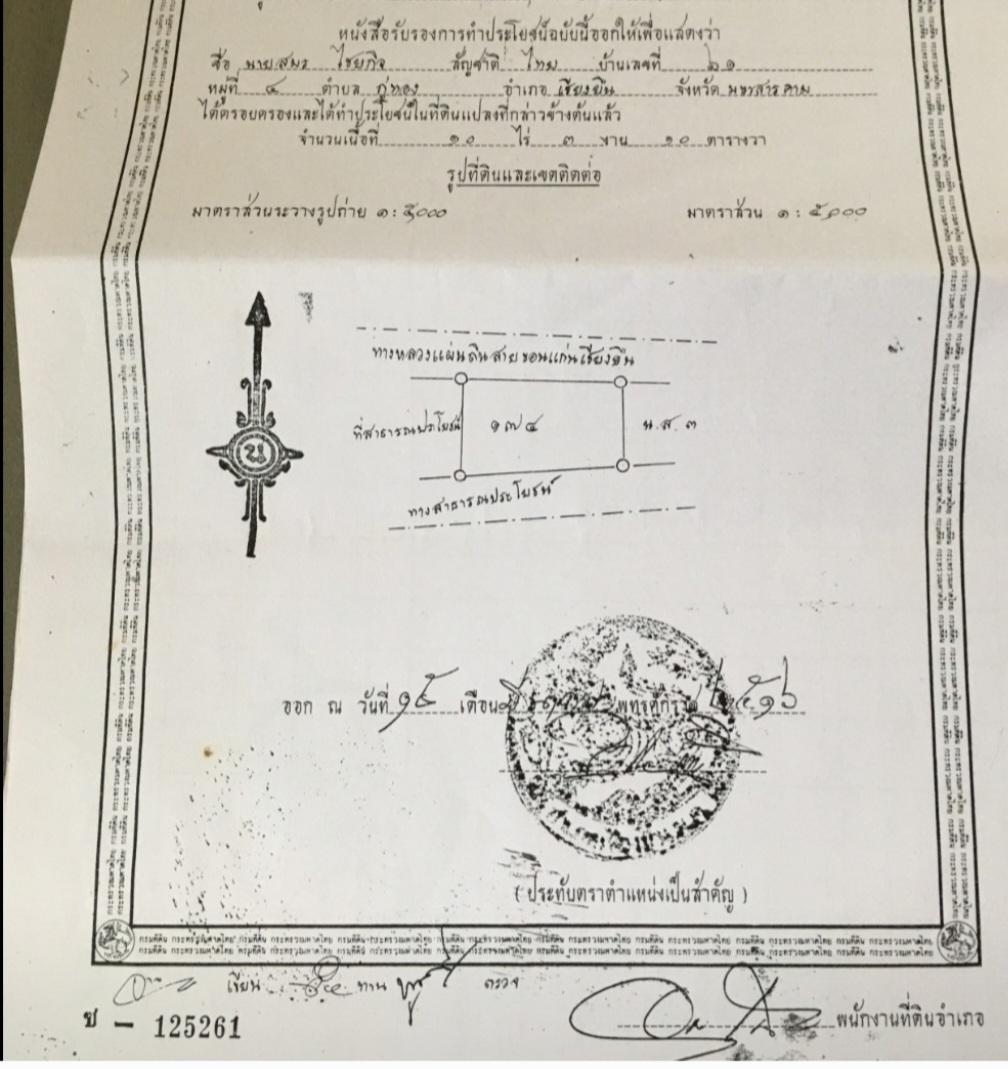 หนังสือรับรองการทำประโยชน์ฉบับนี้ออกให้เพื่อแสดงว่า
ชื่อ นายสมร ไชยกิจ สัญชาติ ไทย บ้านเลขที่ ๖๑
หมู่ที่ ๔ ตำบล กู่ทอง อำเภอ เชียงยืน จังหวัด มหาสารคาม
ได้ครอบครองและได้ทำประโยชน์ในที่ดินแปลงที่กล่าวข้างต้นแล้ว
จำนวนเนื้อที่ ๑๐ ไร่ ๓ งาน ๑๐ ตารางวา
รูปที่ดินและเขตติดต่อ
มาตราส่วนระวางรูปถ่าย ๑ : ๕,๐๐๐ มาตราส่วน ๑ : ๕,๐๐๐
ทางหลวงแผ่นดินสายขอนแก่นเชียงยืน
ที่สาธารณประโยชน์ ๑๗๔ น.ส.๓
ทางสาธารณประโยชน์
น
ออก ณ วันที่ ๑๕ เดือน พุทธศักราช ๒๕๑๖
(ประทับตราตำแหน่งเป็นสำคัญ)
กรมที่ดิน กระทรวงมหาดไทย
เขียน ทาน ตรวจ
ช - 125261 พนักงานที่ดินอำเภอ